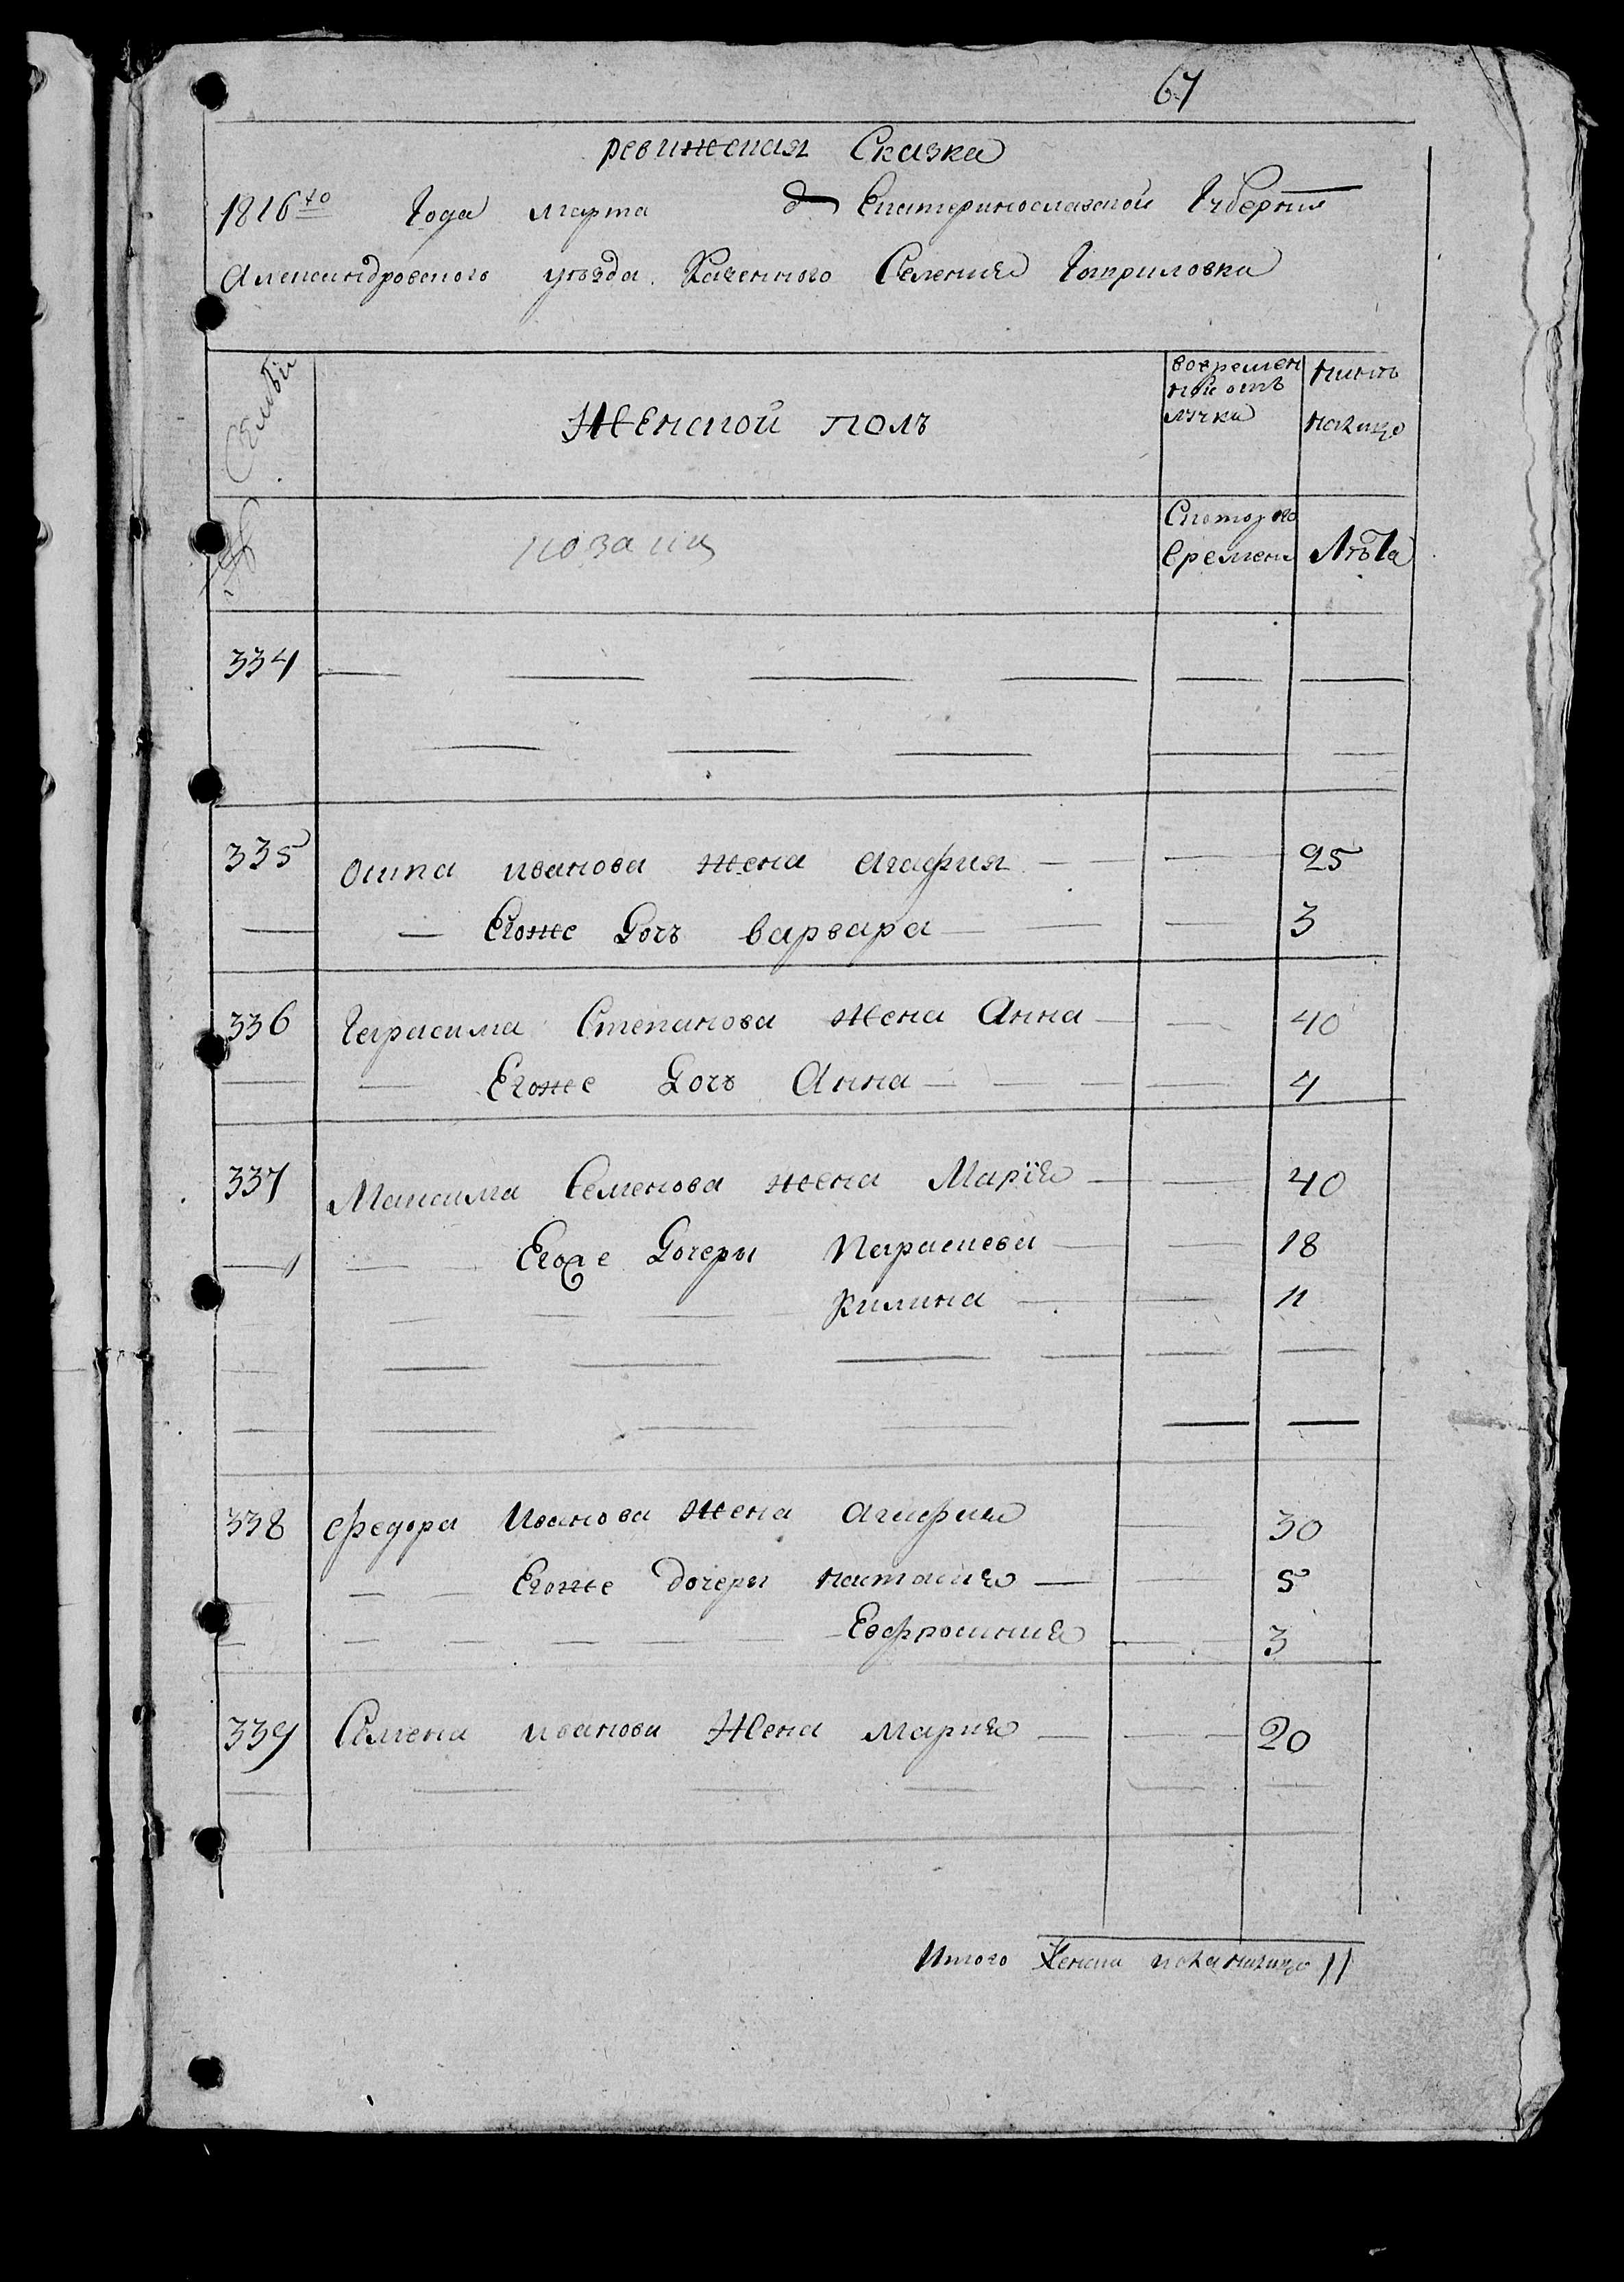 67
ревижская Сказка
1816го Года марта д Екатеринославской Губернии
Александровского уѣзда Казенного Селения Гавриловки
№ Семьи
Женской полъ
вовремен
ной отъ
лучки
нынѣ
налицо
козаки
Скоторого
времени
Лѣта
334
335 Осипа иванова жена агафия 25
Егоже Дочъ варвара 3
336 Герасима Степанова жена Анна 40
Егоже Дочъ Анна 4
337 Максима Семенова жена Марїя 40
Егоже Дочеры Парасковя 18
Килина 11
338 Федора Иванова жена агафия 30
Егоже дочеры наталия 5
Евфросиния 3
339 Семена иванова Жена мария 20
Итого Женска пола налицо 11